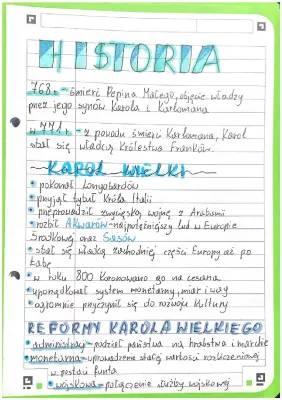 HISTORIA
768r. - śmierć Pepina Małego, objęcie władzy
przez jego synów Karola i Karlomana
w 771 r. - z powodu śmierci Karlomana, Karol
stał się władcą Królestwa Franków.
KAROL WIELKI
• pokonał Longobardów
• przyjął tytuł Króla Italii
• przeprowadził zwycięską wojnę z Arabami
• rozbił Awarów - najpotężniejszy lud w Europie
Środkowej oraz Sasów
• stał się władcą zachodniej części Europy aż po
Łabę
• w roku 800 koronowano go na cesarza
• uporządkował system monetarny, miar i wag
• ogromnie przyczynił się do rozwoju kultury
REFORMY KAROLA WIELKIEGO
• administracji - podział państwa na hrabstwa i marchie
• monetarna - wprowadzenie stałej wartości rozliczeniowej
w postaci funta
• wojskowa - połączenie służby wojskowej